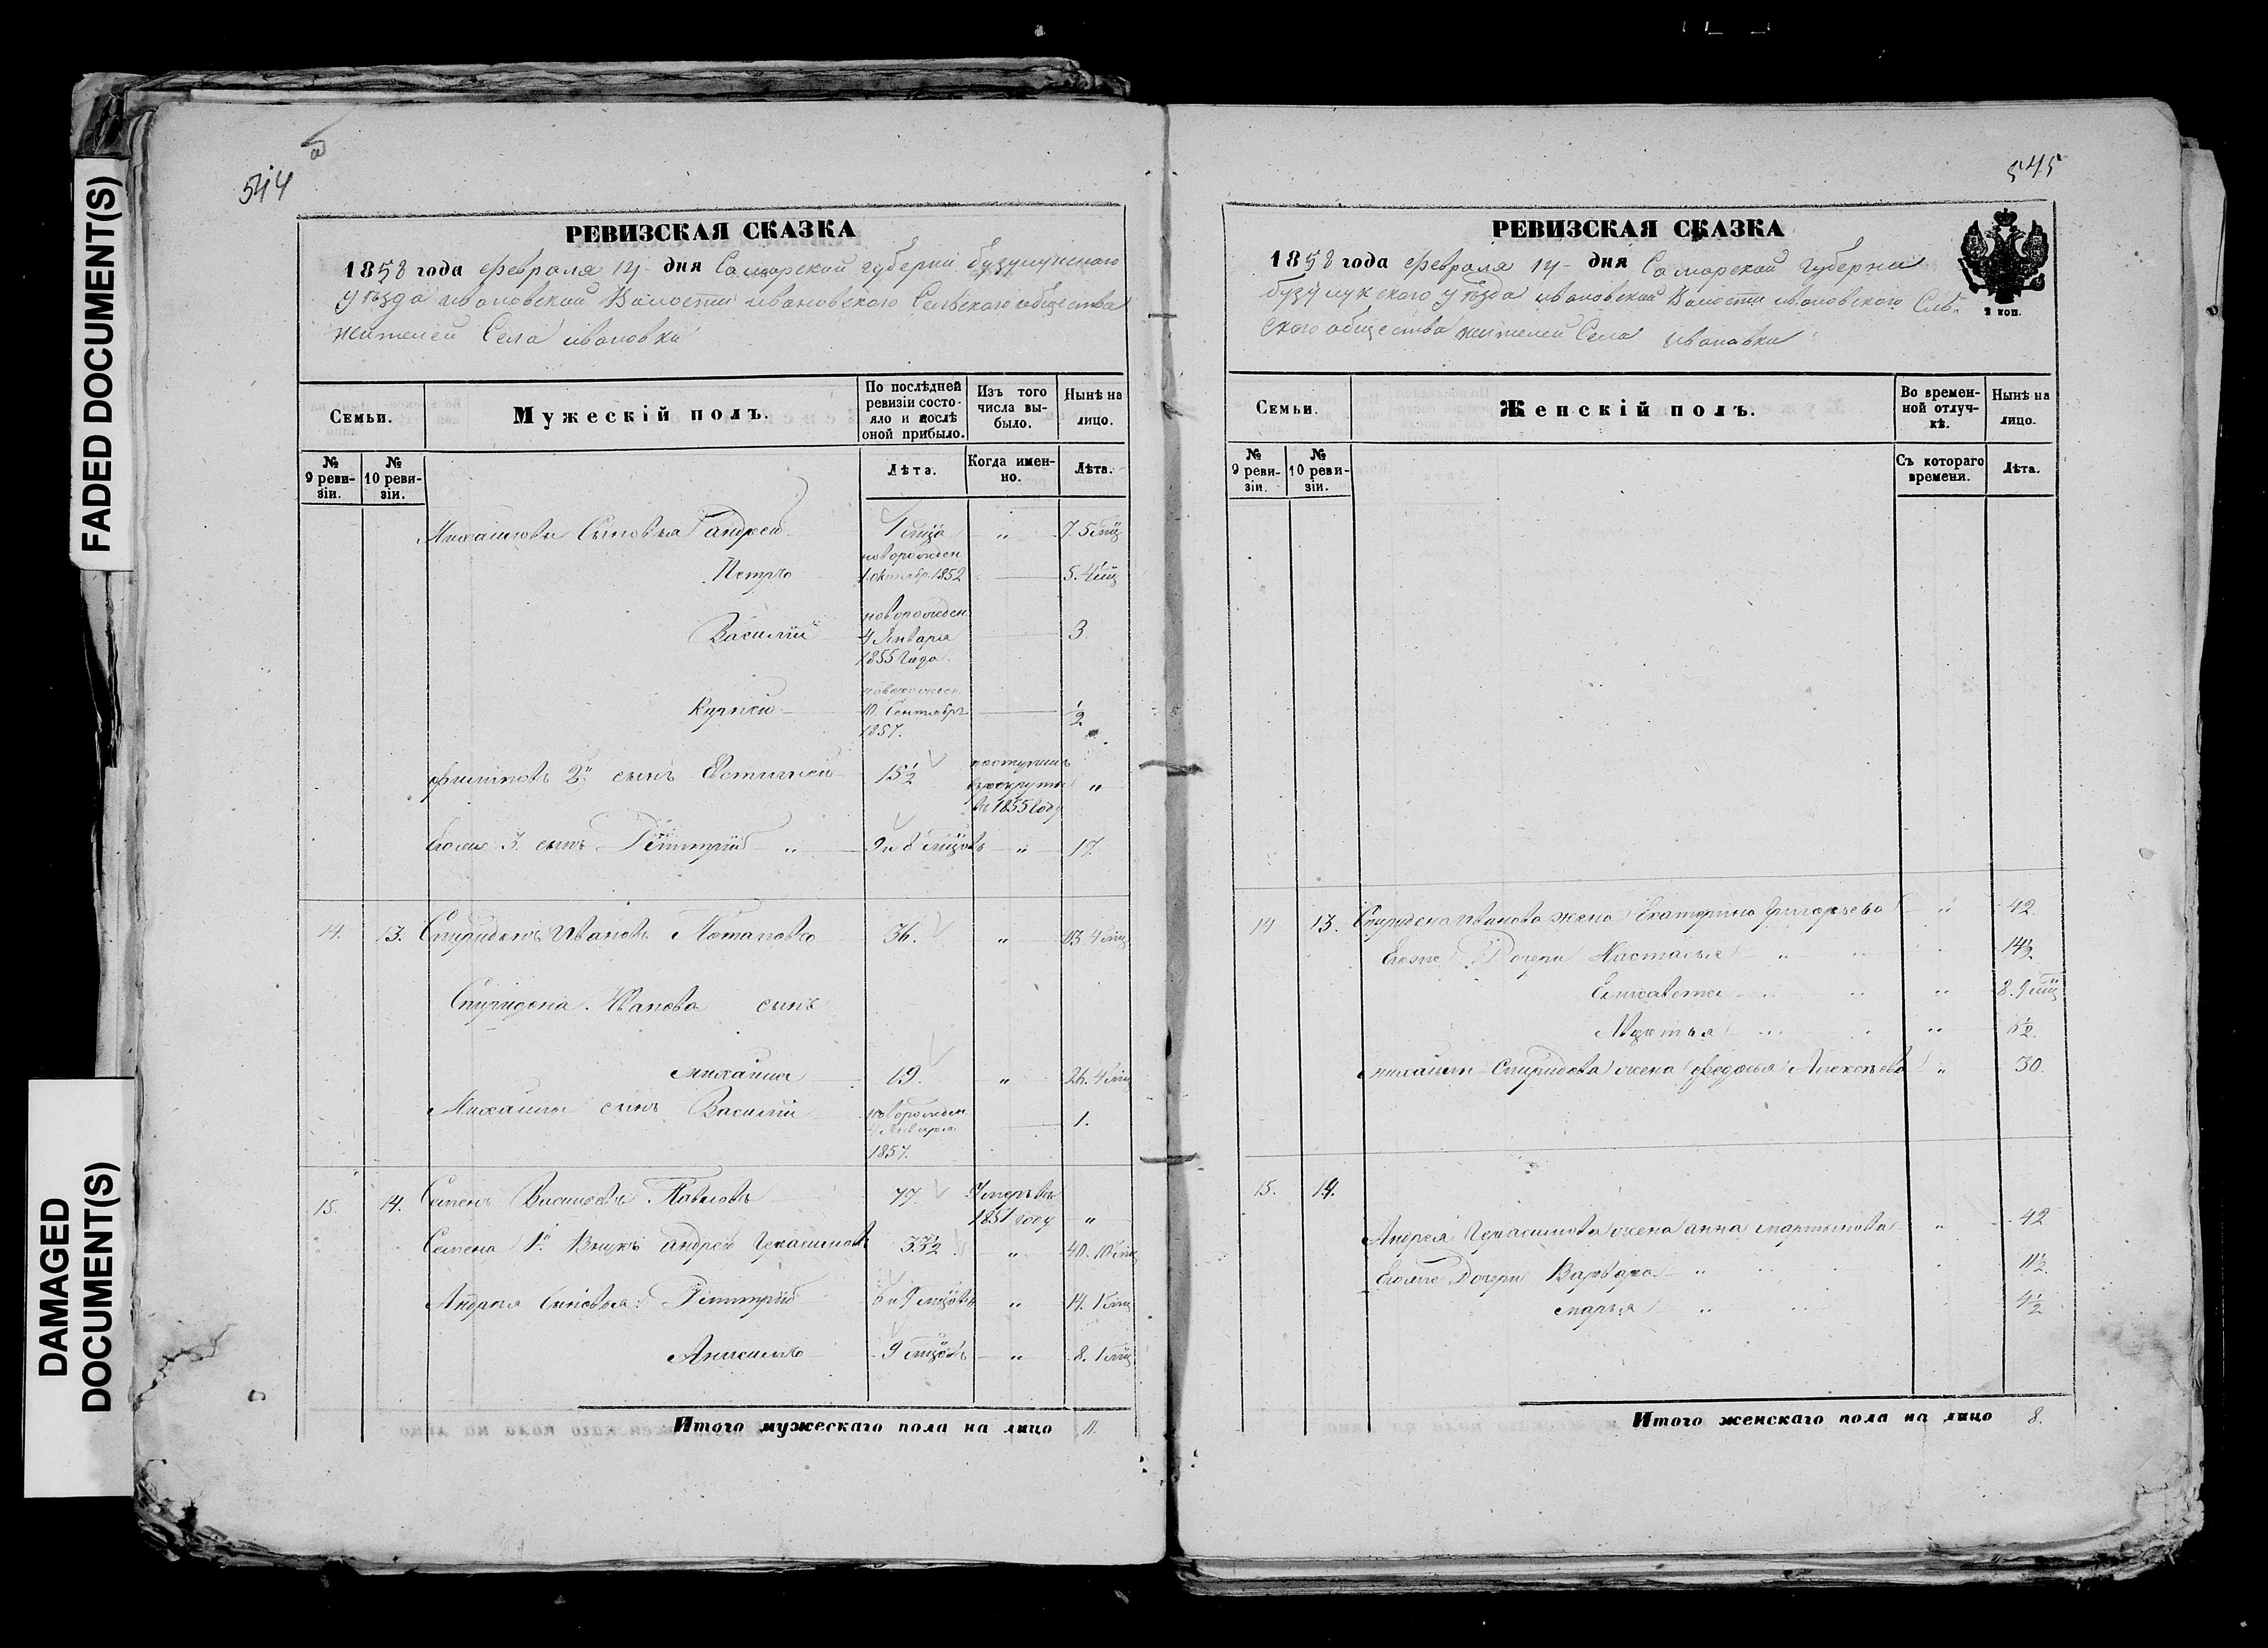 FADED DOCUMENT(S)
DAMAGED
DOCUMENT(S)
544
РЕВИЗСКАЯ СКАЗКА
1858 года февраля 14 дня Самарской губерніи бузулукского
уѣзда ивановской Волости ивановского Сельского общества
жителей Села ивановки
Семьи.
Мужескій полъ.
По послѣдней
ревизіи состо-
яло и послѣ
оной прибыло.
Изъ того
числа вы-
было.
Нынѣ на
лицо.
№
9 реви-
зіи.
№
10 реви-
зіи.
Лѣта.
Когда имен-
но.
Лѣта.
Михайловы Сыновья андрей 1 „ 7. 5
новорожден
Петръ 1. октябр. 1852 5. 4
новорожден
Василій 4 Января 3
1855 года.
10. Сентября ½
1857.
поступилъ
2й сынъ 15½ „
въ 1855 году
3. сынъ Дмитрій „ 9 и 8 „ 17.
14. 13. Спиридонъ Ивановъ Потаповъ 36. „ 4
Спиридона Иванова сынъ
Михаила 19. „ 26. 4
Михайлы сынъ Василій новорожден 1.
4 Января
1857.
15. 14. Семенъ Васильевъ Павловъ 77. Умеръ въ
1851 году „
Семена 1й Внукъ андрей Герасимовъ „ 40. 10
Андрея Сыновья: Дмитрій „ 14. 1
Анисимъ 9 „ 8. 1
Итого мужескаго пола на лицо 11.
545
РЕВИЗСКАЯ СКАЗКА
1858 года февраля 14 дня Самарской губерніи
бузулукского уѣзда ивановской Волости ивановского Сель-
ского общества жителей Села ивановки
2 коп.
Семьи.
Женскій полъ.
Во времен-
ной отлуч-
кѣ.
Нынѣ на
лицо.
№
9 реви-
зіи.
№
10 реви-
зіи.
Съ котораго
времени.
Лѣта.
14 13. Спиридона Иванова жена Екатерина григорьева „ 42.
Дочери Настасья „ „
Елисавета „ „ „ 8. 9
„ „
Михайлы Спиридова жена федосья Алексѣева „ 30.
15. 14.
Андрея Герасимова жена анна мартынова „ 42
Дочери Варвара „ 11½.
марья „ 4½
Итого женскаго пола на лицо 8.